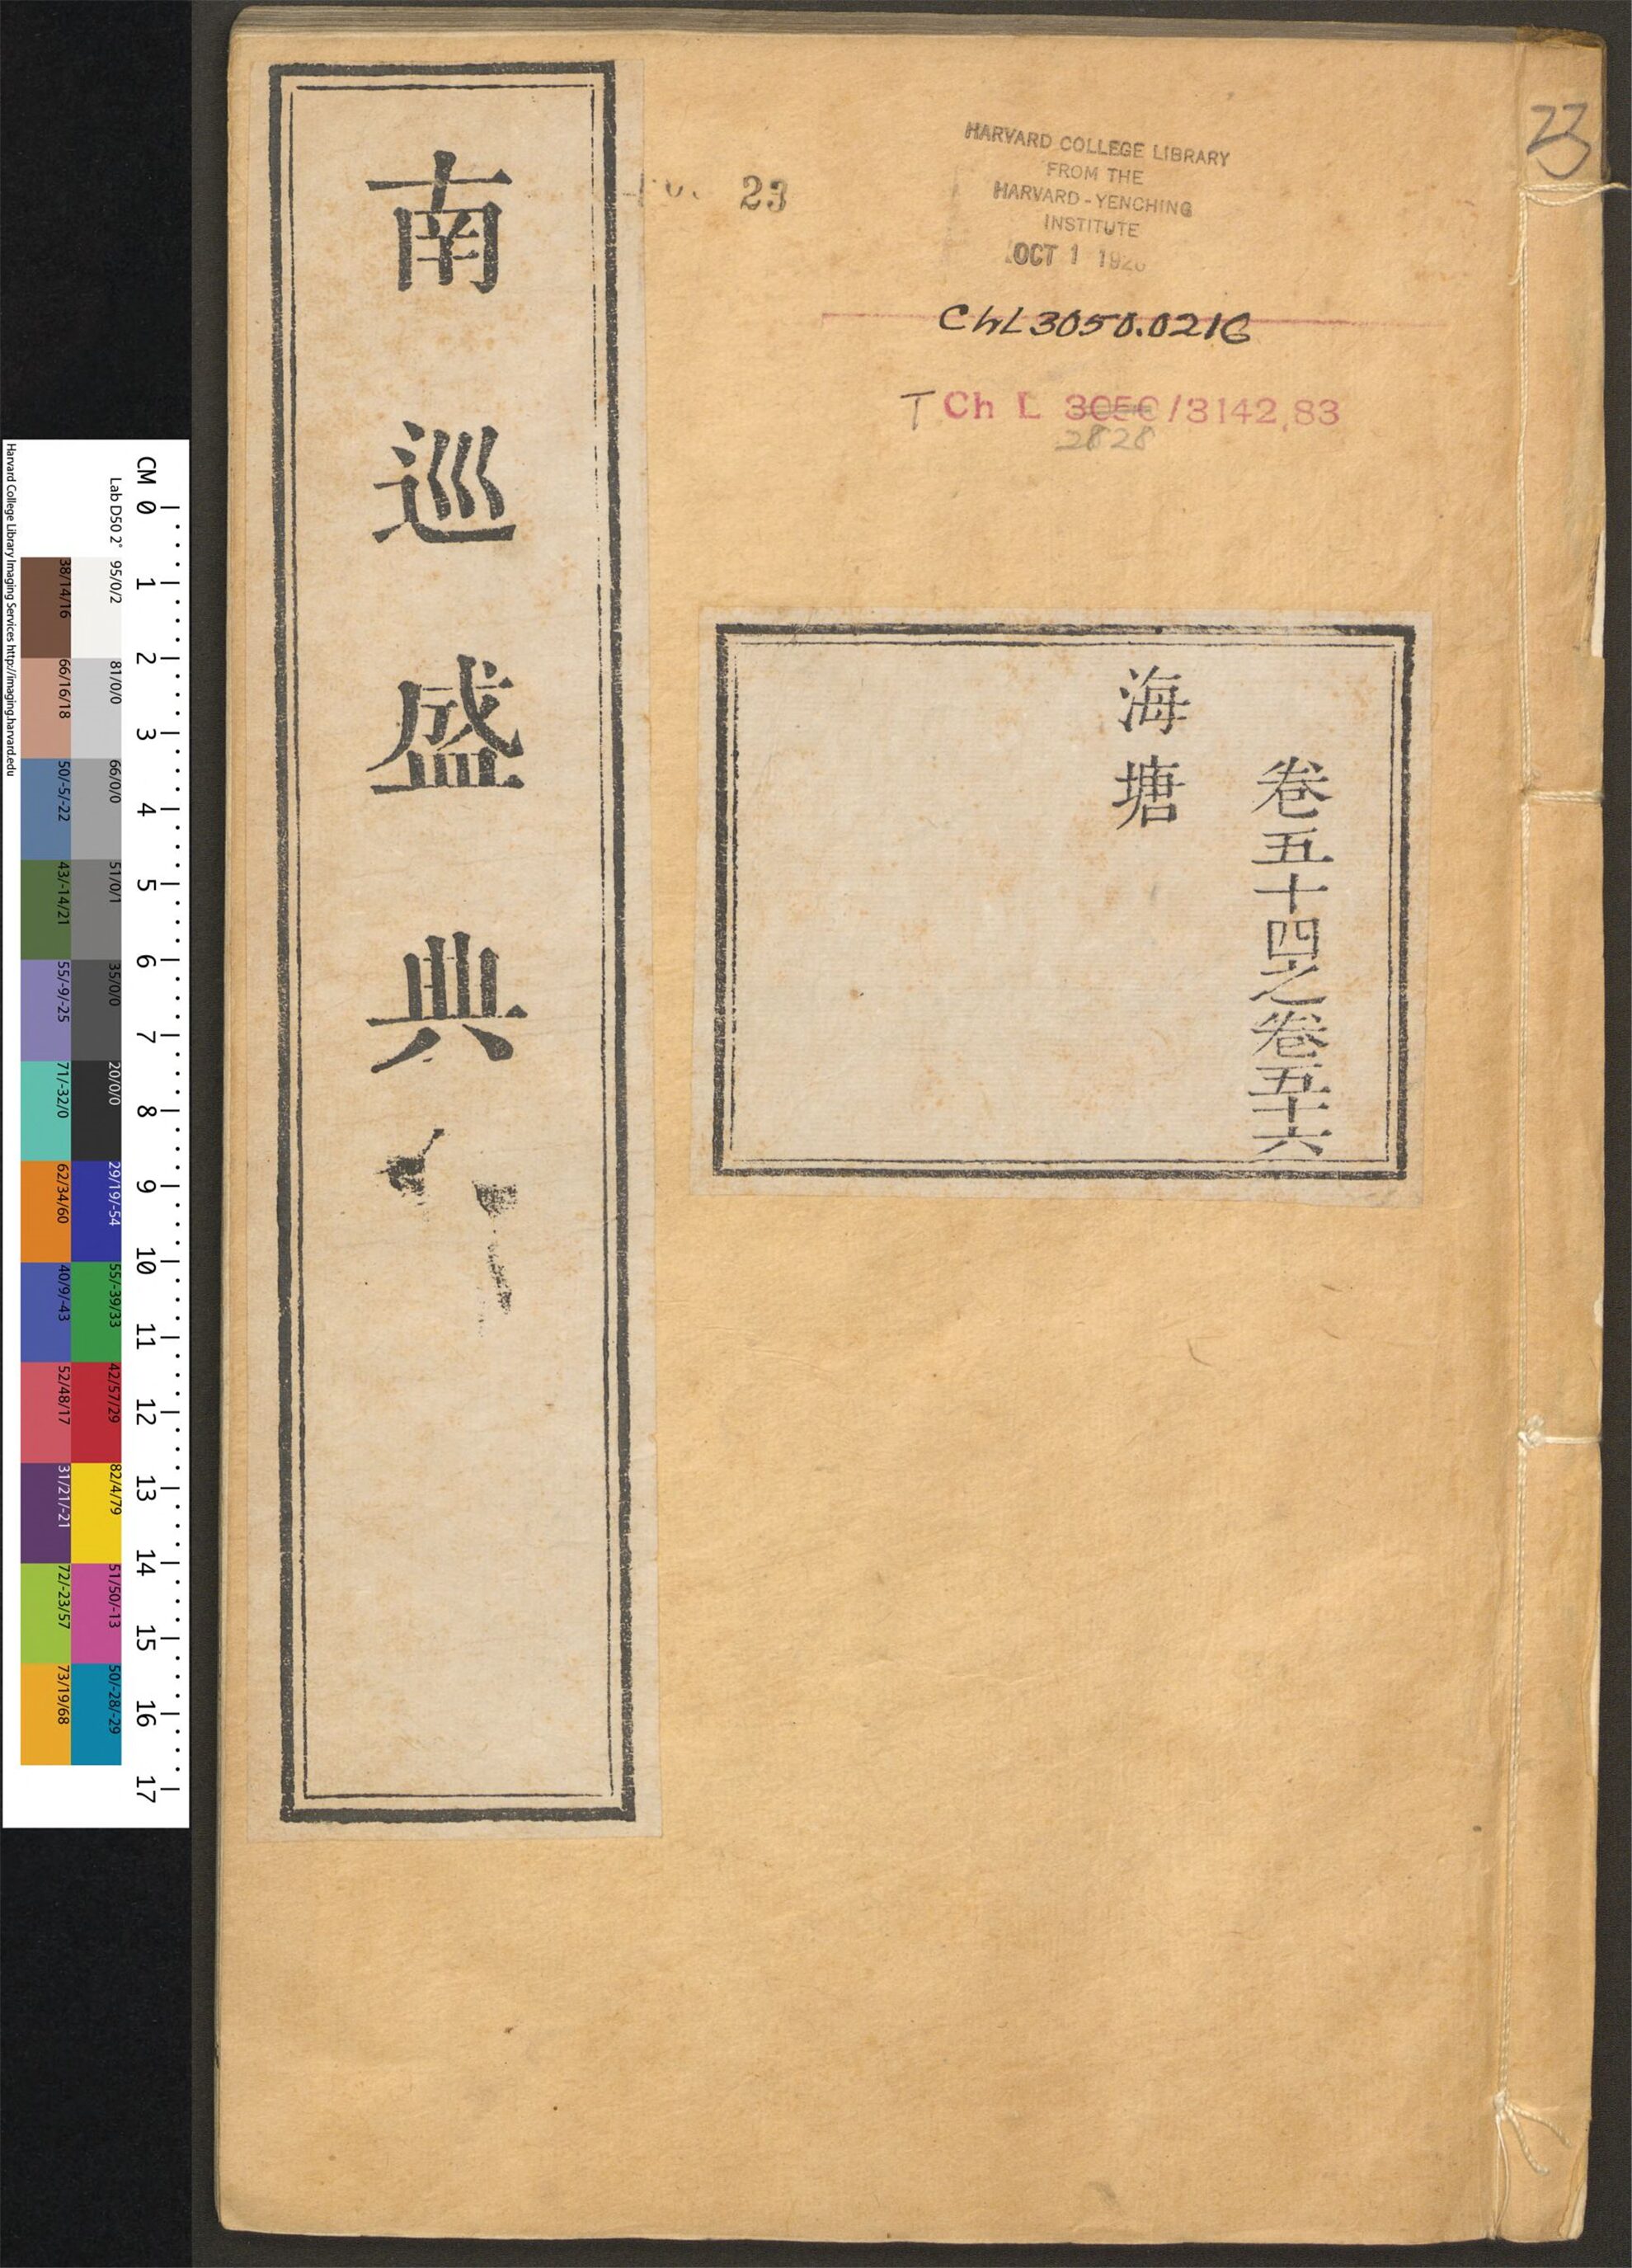 南巡盛典
23
HARVARD COLLEGE LIBRARY
FROM THE
HARVARD-YENCHING
INSTITUTE
OCT 1
ChL3050.0216
T Ch L 3050/3142.83
2828
23
卷五十四之卷五十六
海塘
CM 0 1 2 3 4 5 6 7 8 9 10 11 12 13 14 15 16 17
Lab D50 2° 95/0/2 81/0/0 66/0/0 51/0/1 35/0/0 20/0/0 29/19/-54 55/-39/33 42/57/29 82/4/79 51/50/-13 50/-28/-29
38/14/16 66/16/18 50/-5/-22 43/-14/21 55/-9/-25 71/-32/0 62/34/60 40/9/-43 52/48/17 31/21/-21 72/-23/57 73/19/68
Harvard College Library Imaging Services http://imaging.harvard.edu